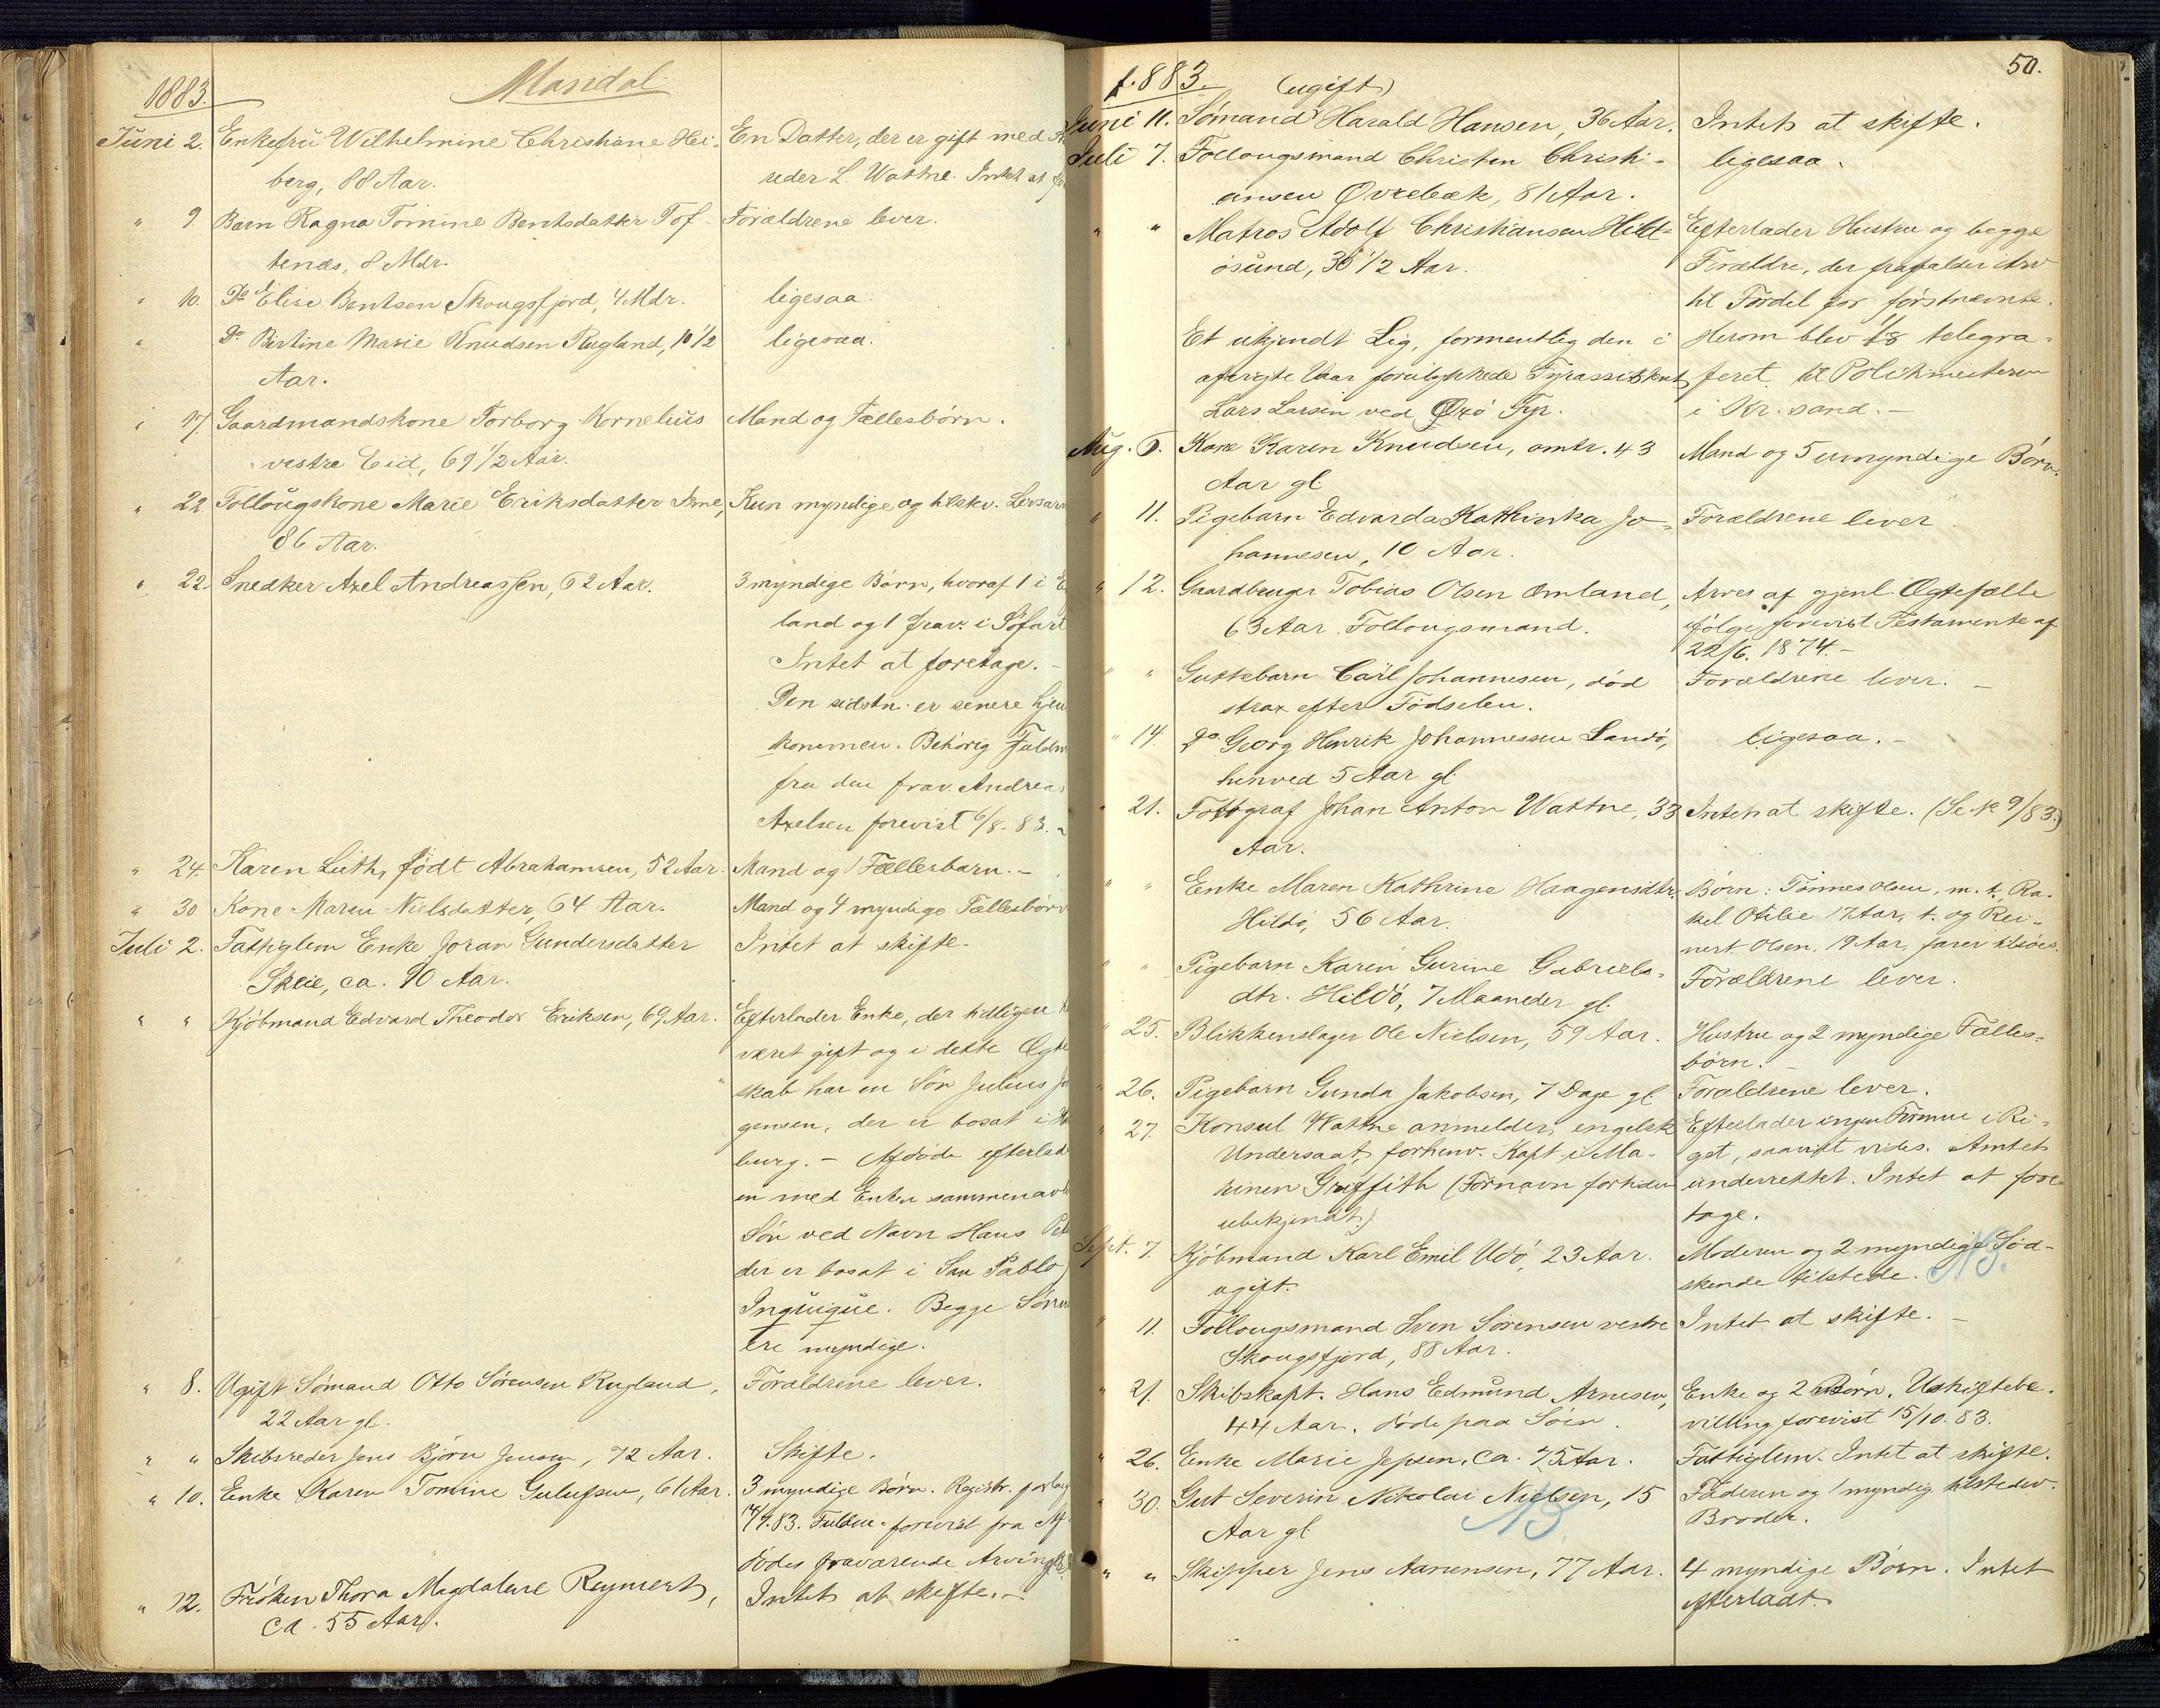 1883.
Mandal
Juni 2. Enkefru Wilhelmine Christiane Hei- En Datter, der er gift med
berg, 88 Aar. reder L. Wattne. Intet at
" 9. Barn Ragna Tomine Bentsdatter Tof- Forældrene lever.
tenæs, 8 Mdr.
" 10. Do Elise Bentsen Skougsfjord, 4 Mdr. ligesaa.
" Do Birtine Marie Knudsen Rugland, 10 1/2 ligesaa.
Aar.
" 17. Gaardmandskone Torborg Kornelius Mand og Fællesbörn.
vestre Eid, 69 1/2 Aar.
" 22 Follougskone Marie Eriksdatter Ime, Kun myndige og tilstev. Livsarv
86 Aar.
" 22. Snedker Axel Andreassen, 62 Aar. 3 myndige Börn, hvoraf 1 i
land og 1 frav. i Söfart
Intet at foretage. -
Den sidstn. er senere hjem
kommen. Behörig Fuldm
fra den frav. Andreas
Axelsen forevist 6/8. 83. -
" 24. Karen Luth, födt Abrahamsen, 52 Aar. Mand og 1 Fællesbarn. -
" 30 Kone Maren Nielsdatter, 64 Aar. Mand og 4 myndige Fællesbörn
Juli 2. Fattiglem Enke Joran Gundersdatter Intet at skifte.
Skeie, ca. 70 Aar.
" " Kjöbmand Edvard Theodor Eriksen, 69 Aar. Efterlader Enke, der tidligere
været gift og i dette Ægte
skab har en Sön Julius
gensen, der er bosat i
burg. - Afdöde efterlad
en med Enken sammenavl
Sön ved Navn Hans Pet
der er bosat i San Pablo
Inquique. Begge Sönn
ere myndige.
" 8. Ugift Sömand Otto Sörensen Rugland, Forældrene lever.
22 Aar gl.
" " Skibsreder Jens Björn Jensen, 72 Aar. Skifte.
" 10. Enke Karen Tomine Gulufsen, 61 Aar. 3 myndige Börn. Registr.
/9.83. Fuldm. forevist fra Af-
dödes fraværende Arving
" 12. Fröken Thora Magdalene Reymert, Intet at skifte. -
ca. 55 Aar.
50.
1883. (ugift)
Juni 11. Sömand Harald Hansen, 36 Aar. Intet at skifte.
Juli 7. Follougsmand Christen Christi- ligesaa.
ansen Øvrebæk, 81 Aar.
" " Matros Adolf Christiansen Hille- Efterlader Hustru og begge
ösund, 36 1/2 Aar. Forældre, der frafalder Arv
til Fordel for förstnævnte.
Et ukjendt Lig, formentlig den i Herom blev telegra-
afvigte Vaar forulykkede Fyrassistent feret til Politimesteren
Lars Larsen ved Oxö Fyr. i Kr.sand. -
Aug. Kone Karen Knudsen, omtr. 43 Mand og 5 umyndige Börn.
Aar gl.
" 11. Pigebarn Edvarda Kathinka Jo- Forældrene lever
hannesen, 10 Aar.
" 12. Gaardbruger Tobias Olsen Omland, Arves af gjenl. Ægtefælle
63 Aar. Follougsmand. ifölge forevist Testamente af
22/6. 1874. -
" " Guttebarn Carl Johannesen, död Forældrene lever. -
strax efter Födselen.
" 14. Do Georg Henrik Johannessen Landö, ligesaa. -
henved 5 Aar gl.
" 21. Fotograf Johan Anton Wattne, 33 Intet at skifte. (Se 9/83.)
Aar.
" " Enke Maren Kathrine Haagensdtr. Börn: Tönnes Olsen, m. t., Ra-
Hildö, 56 Aar. kel Otilie 17 Aar, t. og Rei-
nert Olsen, 19 Aar, farer tilsöes.
" " Pigebarn Karen Gurine Gabriels- Forældrene lever.
dtr. Hildö, 7 Maaneder gl.
" 25. Blikkenslager Ole Nielsen, 59 Aar. Hustru og 2 myndige Fælles-
börn. -
" 26. Pigebarn Gunda Jakobsen, 7 Dage gl. Forældrene lever.
" 27. Konsul Wattne anmelder, engelsk Efterlader ingen Formue i Ri-
Undersaat, forhenv. Kapt. i Ma- get, saavidt vides. Amtet
rinen Griffith (Fornavn fortiden underrettet. Intet at fore-
ubekjendt.) tage.
Sept. 7. Kjöbmand Karl Emil Udö, 23 Aar. Moderen og 2 myndige Söd-
ugift. skende tilstede. NB.
" 11. Follougsmand Sven Sörensen vestre Intet at skifte. -
Skougsfjord, 88 Aar.
" 21. Skibskapt. Hans Edmund Arnesen, Enke og 2 Börn. Uskiftebe-
44 Aar. döde paa Söen. villing forevist 15/10. 83.
" 26. Enke Marie Jepsen, ca. 75 Aar. Fattiglem. Intet at skifte.
" 30. Gut Severin Nikolai Nielsen, 15 Faderen og 1 myndig tilstedev.
Aar gl. NB Broder.
" " Skipper Jens Aanensen, 77 Aar. 4 myndige Börn. Intet
efterladt.